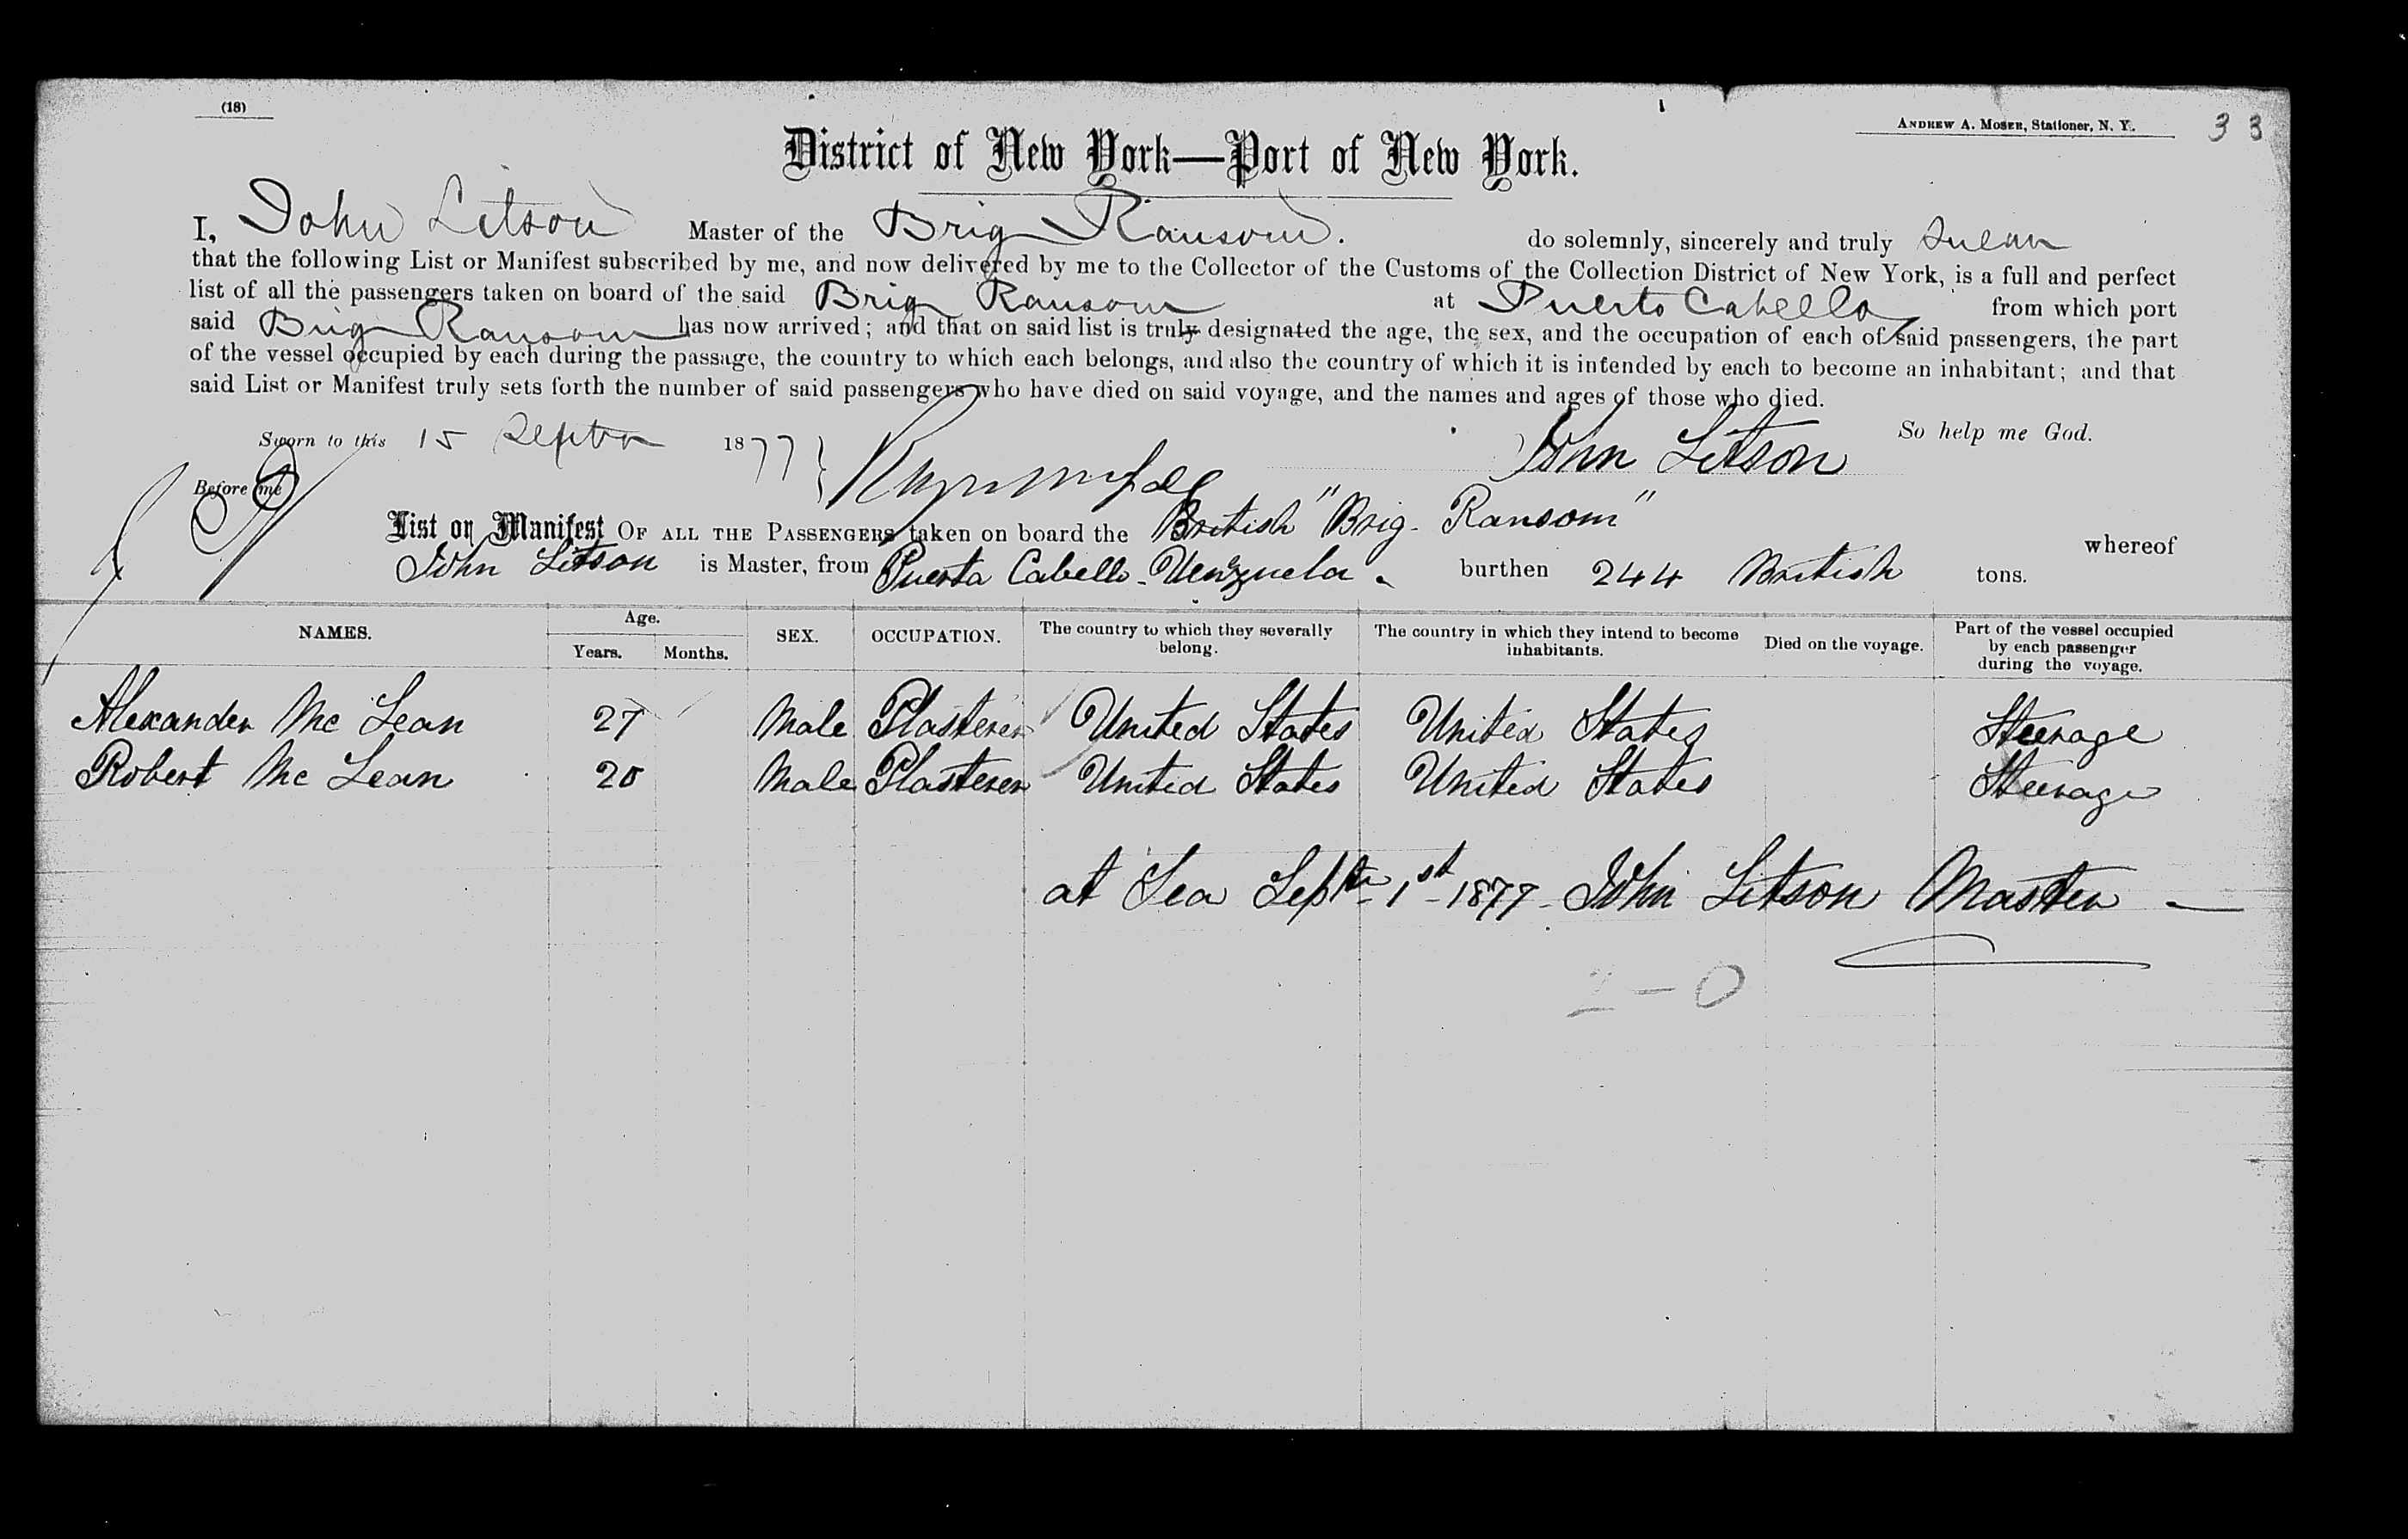 (18)
ANDREW A. MOSER, Stationer, N. Y.
3 3
District of New York—Port of New York.
I, John Litson Master of the Brig Ransom. do solemnly, sincerely and truly swear
that the following List or Manifest subscribed by me, and now delivered by me to the Collector of the Customs of the Collection District of New York, is a full and perfect
list of all the passengers taken on board of the said Brig Ransom at Puerto Cabello from which port
said Brig Ransom has now arrived; and that on said list is truly designated the age, the sex, and the occupation of each of said passengers, the part
of the vessel occupied by each during the passage, the country to which each belongs, and also the country of which it is intended by each to become an inhabitant; and that
said List or Manifest truly sets forth the number of said passengers who have died on said voyage, and the names and ages of those who died.
So help me God.
Sworn to this 15 Septbr 1877 John Litson
Before me
List or Manifest OF ALL THE PASSENGERS taken on board the British "Brig- Ransom" whereof
John Litson is Master, from Puerta Cabello - Venzuela. burthen 244 British tons.
NAMES. Age. Years. Months. SEX. OCCUPATION. The country to which they severally belong. The country in which they intend to become inhabitants. Died on the voyage. Part of the vessel occupied by each passenger during the voyage.
Alexander Mc Lean 27 Male Plasterer United States United States Steerage
Robert Mc Lean 25 Male Plasterer United States United States Steerage
at Sea Septbr 1st - 1877 - John Litson Master —
2 - 0